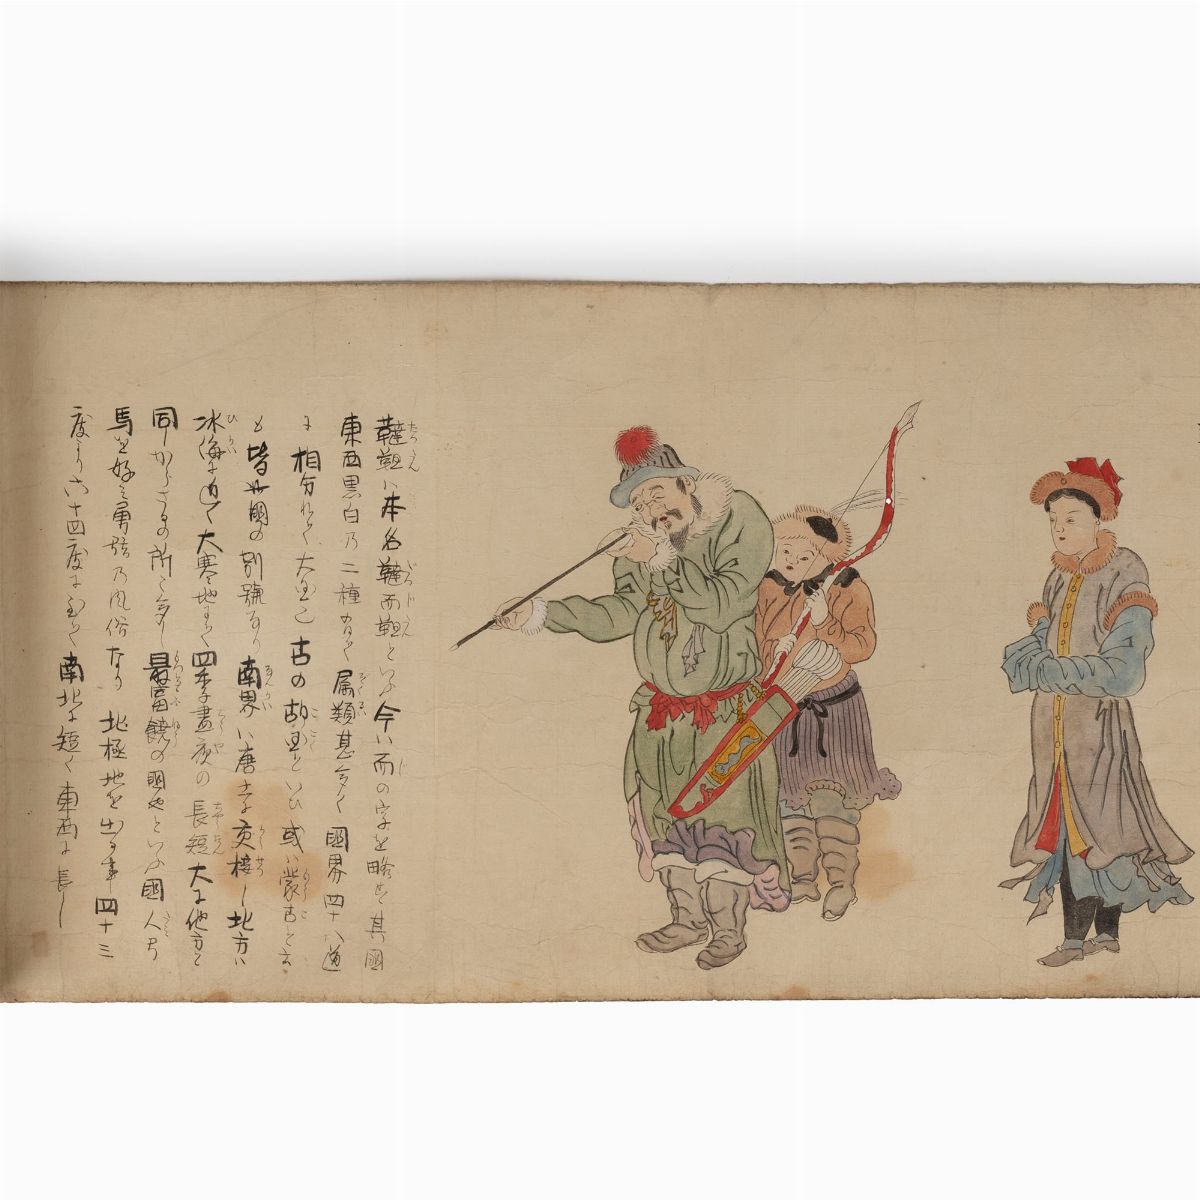 韃靼ハ本名韃而靼といふ今ハ而の字を略す其國
東西黒白乃二種有て属類甚多く國界四十八道
に相分れて大国也古の胡国といひ或ハ蒙古と云
も皆此國の別號なり南界ハ唐土に交接し北方ハ
氷海に近て大寒地にて四季昼夜の長短大に他方と
同しからさる所多し最冨饒の國也といふ國人弓
馬を好み勇猛乃風俗なり北極地を出る事四十三
度より六十四度に至て南北に短く東西に長し